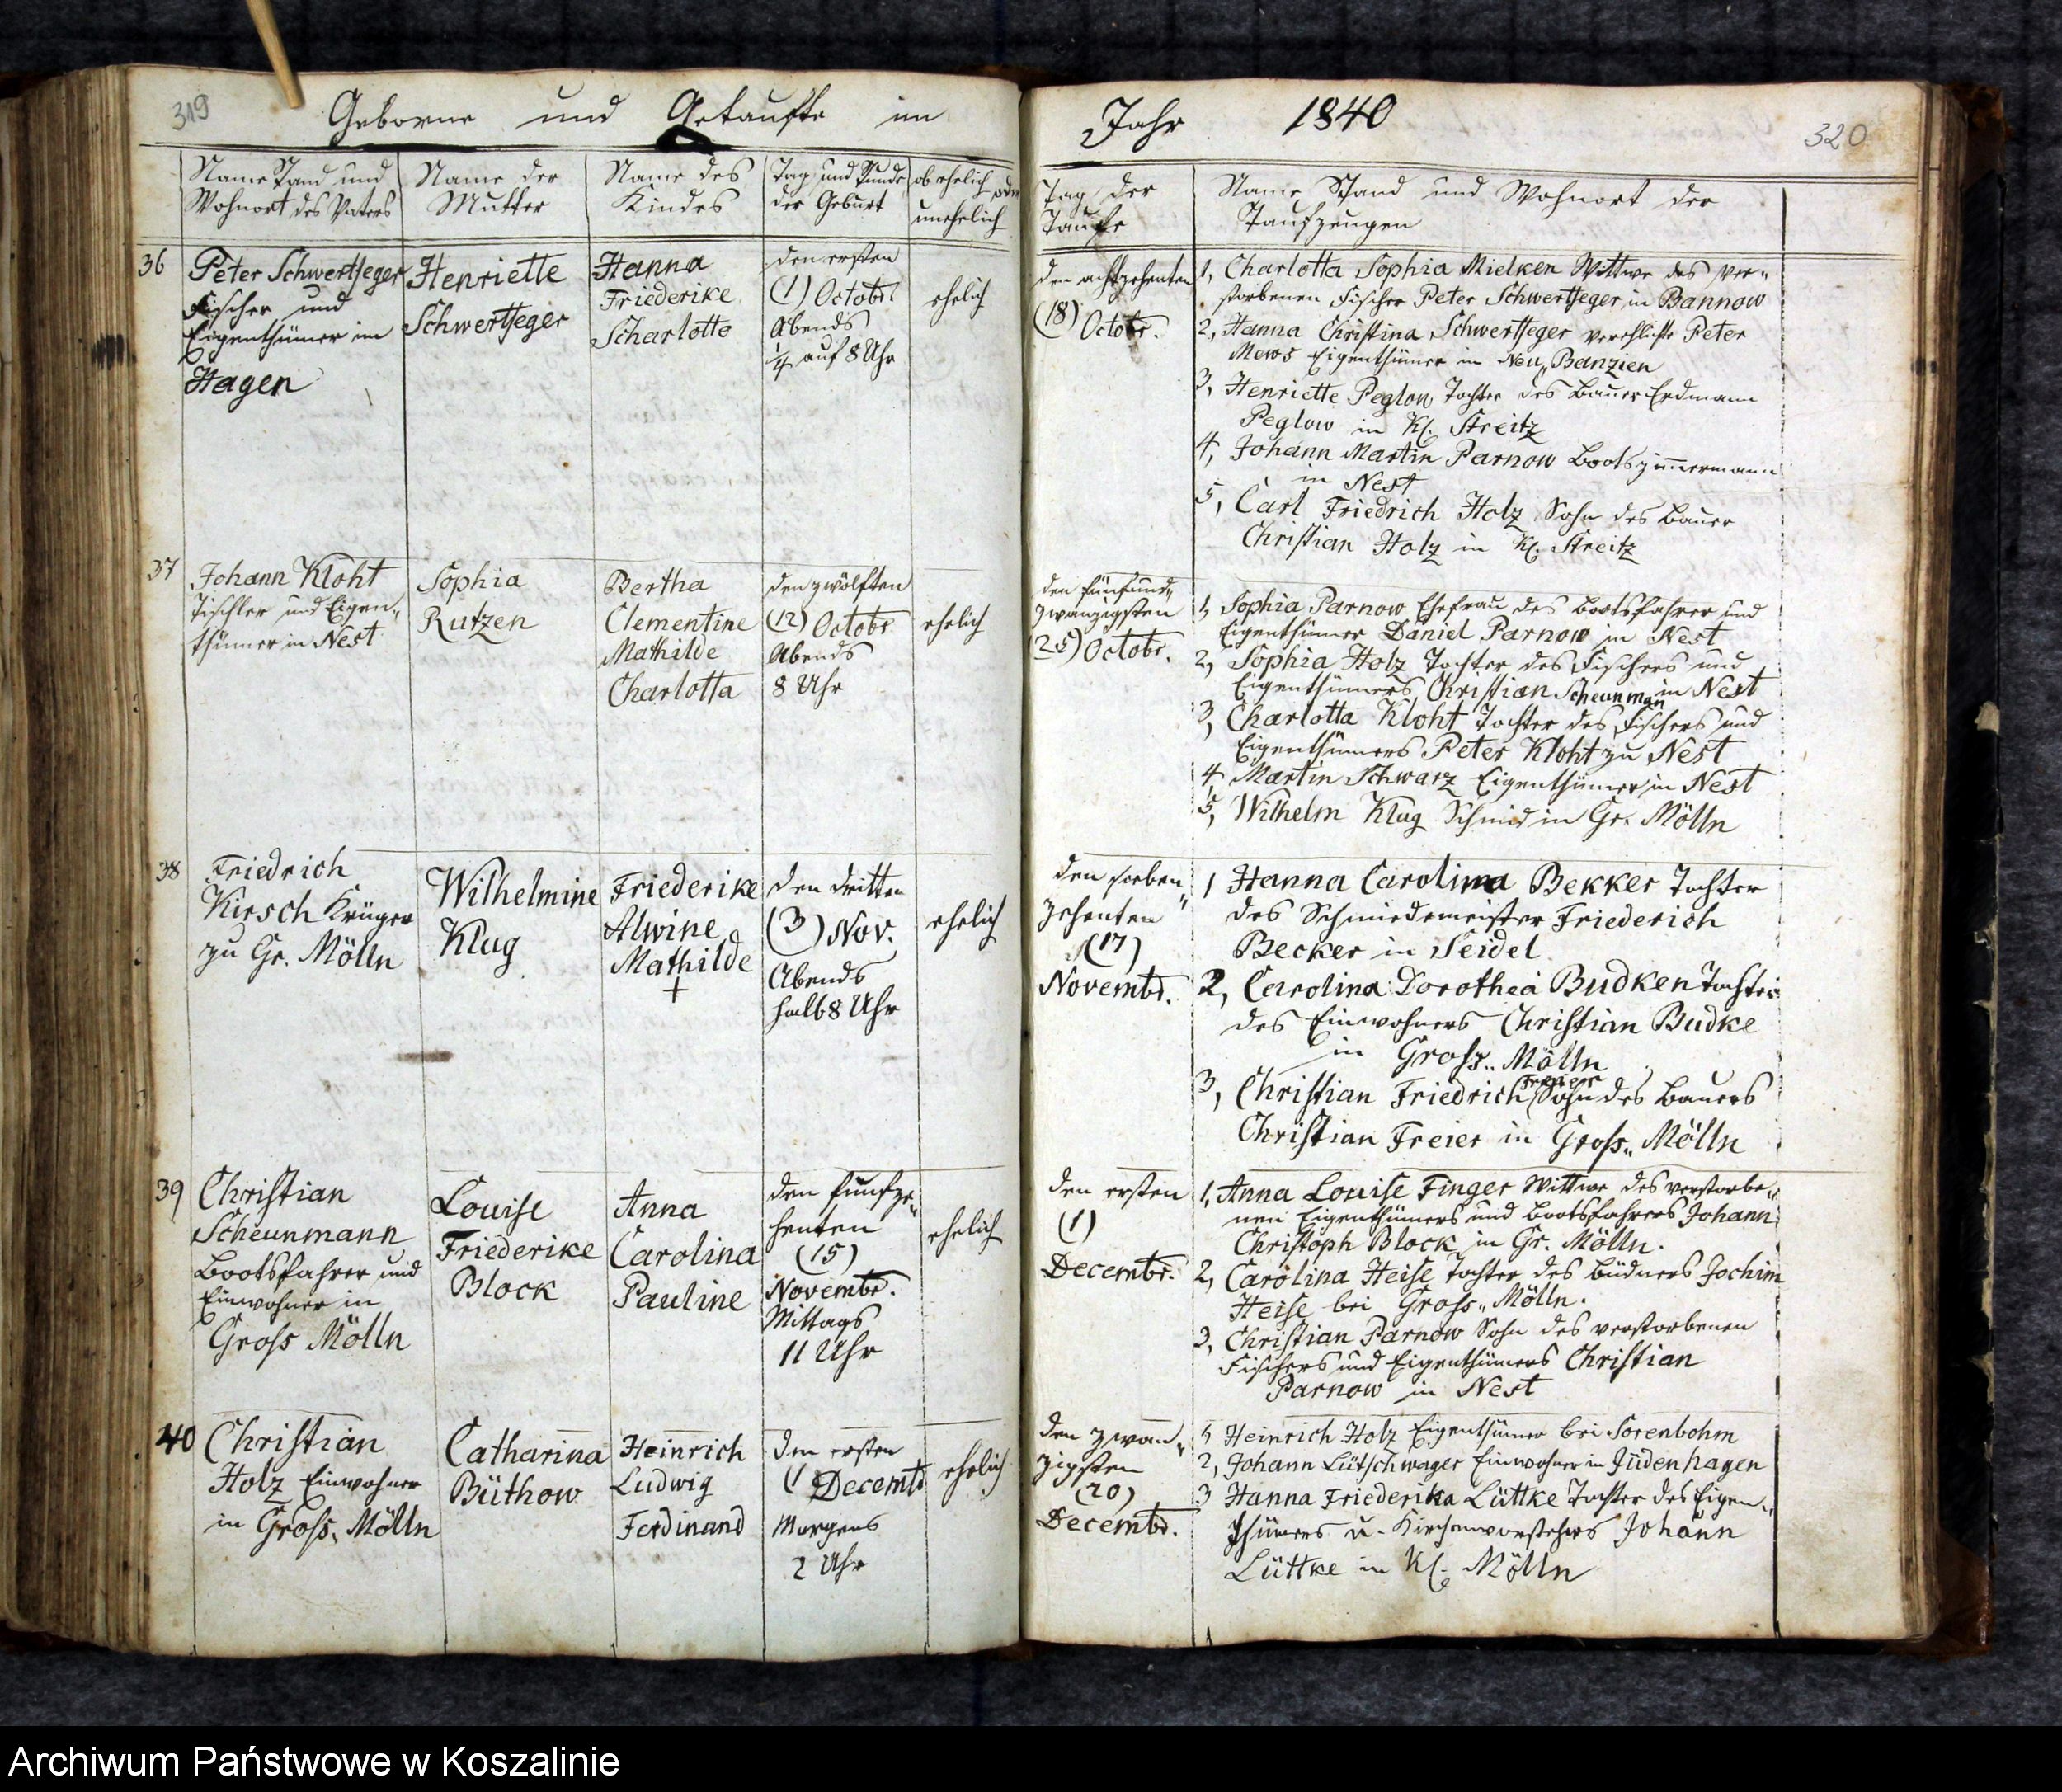 319
Geborne und Getaufte im
Name Stand und
Wohnort des Vaters
Name der
Mutter
Name des
Kindes
Tag und Stunde
der Geburt
ob ehelich oder
unehelich
36
Peter Schwertfeger
Fischer und
Eigenthümer im
Hagen
Henriette
Schwertfeger
Hanna
Friederike
Scharlotte
den ersten
(1) Octobr
Abends
1/4 auf 8 Uhr
ehelich
37
Johann Kloht
Tischler und Eigen„
thümer in Nest
Sophia
Rutzen
Bertha
Clementine
Mathilde
Charlotta
den zwölften
(12) Octobr
Abends
8 Uhr
ehelich
38
Friedrich
Kirsch Krüger
zu Gr. Mölln
Wilhelmine
Klug
Friederike
Alwine
Mathilde
+
den dritten
(3) Nov.
Abends
halb 8 Uhr
ehelich
39
Christian
Scheunmann
Bootsfahrer und
Einwohner in
Gross Mölln
Louise
Friederike
Block
Anna
Carolina
Pauline
den funfze„
henten
(15)
Novembr.
Mittags
11 Uhr
ehelich
40
Christian
Holz Einwohner
in Gross„ Mölln
Catharina
Büthow
Heinrich
Ludwig
Ferdinand
den ersten
(1 Decembr
Morgens
2 Uhr
ehelich
Jahr 1840
320
Tag der
Taufe
Name Stand und Wohnort der
Taufzeugen
den achtzehenten
(18) Octobr.
1, Charlotta Sophia Mielken Wittwe des ver„
storbenen Fischer Peter Schwertfeger in Bannow
2, Hanna Christina Schwertfeger verehlichte Peter
Mews Eigenthümer in Neu„ Banzien
3, Henriette Peglow Tochter des Bauer Erdmann
Peglow in Kl. Streitz
4, Johann Martin Parnow Bootszimmermann
in Nest
5, Carl Friedrich Holz Sohn des Bauer
Christian Holz in Kl. Streitz
den fünfund„
zwanzigsten
(25) Octobr.
1, Sophia Parnow Ehefrau des Bootsfahrer und
Eigenthümer Daniel Parnow in Nest
2, Sophia Holz Tochter des Fischers und
Eigenthümers Christian Scheunman in Nest
3, Charlotta Kloht Tochter des Fischers und
Eigenthümers Peter Kloht zu Nest
4, Martin Schwarz Eigenthümer in Nest
5, Wilhelm Klug Schmid in Gr. Mölln
den sieben„
zehenten
(17)
Novembr.
1 Hanna Carolina Bekker Tochter
des Schmiedemeister Friederich
Becker in Seidel
2, Carolina Dorothea Budken Tochter
des Einwohners Christian Budke
in Gross„ Mölln
3, Christian Friedrich Freier Sohn des Bauers
Christian Freier in Gross„ Mölln
den ersten
(1)
Decembr.
1, Anna Louise Finger Wittwe des verstorbe„
nen Eigenthümers und Bootsfahrers Johann
Christoph Block in Gr. Mölln.
2, Carolina Heise Tochter des Büdners Jochim
Heise bei Gross„ Mölln.
3, Christian Parnow Sohn des verstorbenen
Fischers und Eigenthümers Christian
Parnow in Nest
den zwan„
zigsten
(20)
Decembr.
1, Heinrich Holz Eigenthümer bei Sorenbohm
2, Johann Lütschwager Einwohner in Jüdenhagen
3 Hanna Friederika Lüttke Tochter des Eigen„
thümers u. Kirchenvorstehers Johann
Lüttke in Kl. Mölln
Archiwum Państwowe w Koszalinie